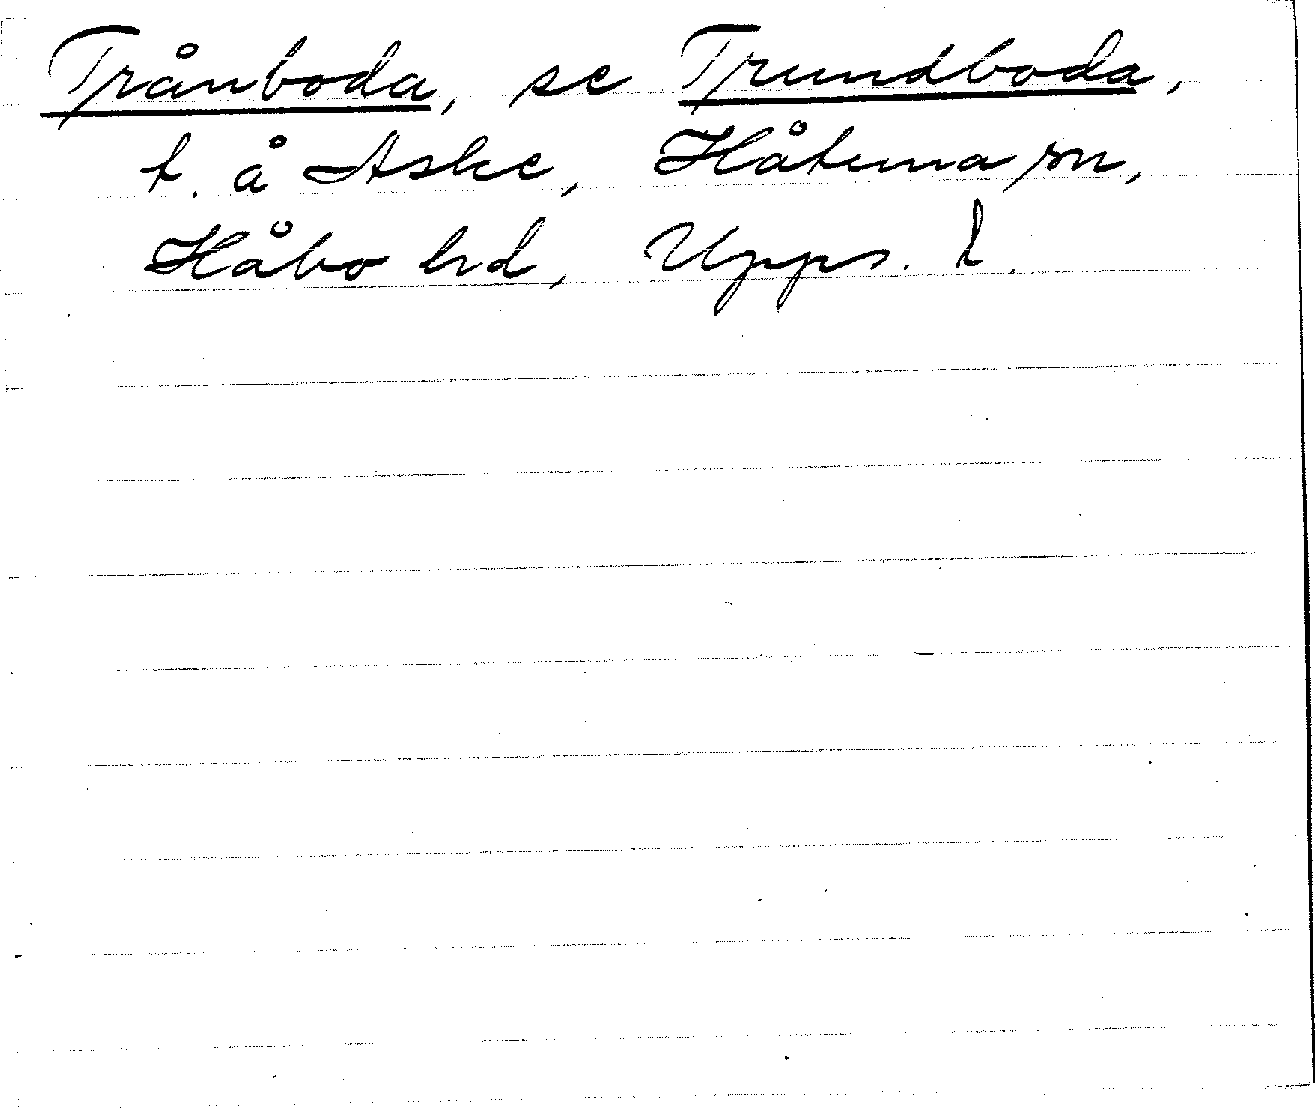 Trånboda, se Trundboda,
t. å Aske, Håtuna sn,
Håbo hd, Upps. l.